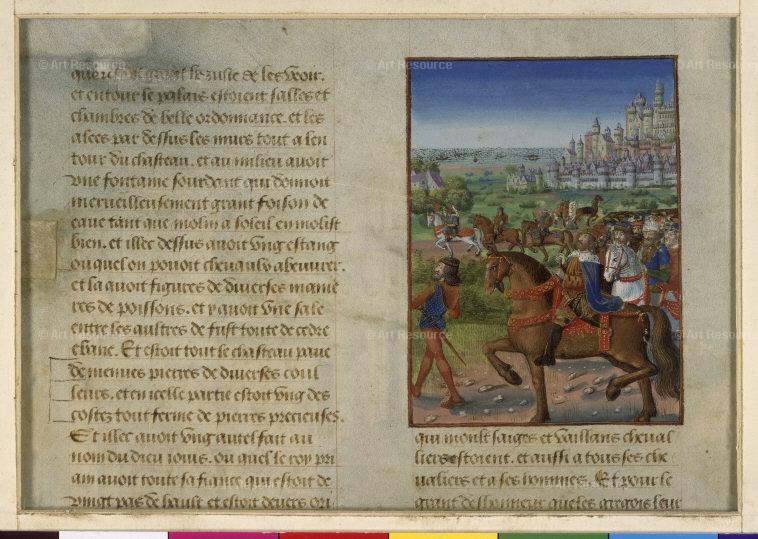 © Art Resource © Art Resource © Art Resource
grant
et entour le palais estoient salles et
chambres de belle ordonnance. et les
alees par dessus les murs tout a len
tour du chasteau. et au milieu auoit
vne fontaine sourdant qui donnoit
merueilleusement grant foison de
eaue tant que molin a soleil en molist
bien. et illec dessus auoit vng estang
ou quel on pouoit cheuaulx abeuurer.
et la auoit figures de diuerses manie
res de poissons. et y auoit vne sale
entre les aultres de fust toute de cedre
ebane. Et estoit tout le chasteau paue
de menues pierres de diuerses coul
leurs. et en icelle partie estoit vng des
costez tout ferme de pierres precieuses.
Et illec auoit vng autel fait au
nom du dieu iouis. ou quel le roy pri
am auoit toute sa fiance qui estoit de
vingt pas de hault et estoit deuers ori
qui moult saiges et vaillans cheual
liers estoient. et aussi a tous ses che
ualiers et a ses hommes. Et pour le
grant deshonneur que les gregois leur